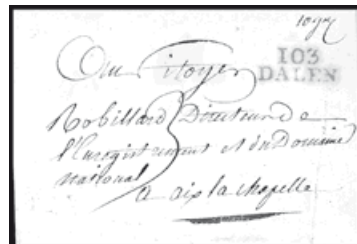 103
DALEN
Au Citoyen
Robillard Directeur de
l'Enregistrement et du Domaine
national
3
a aix la chapelle